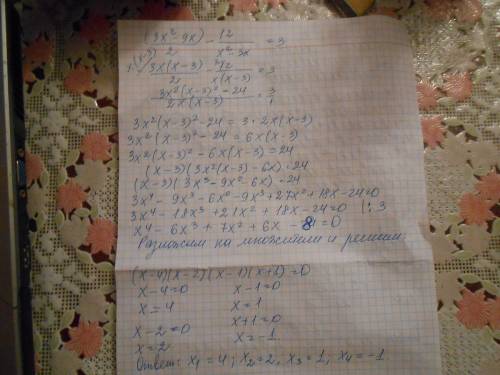 (3x² - 9x)/2 - 12/(x² - 3x) = 3
x(x-3) 3x(x-3)/2 - 12/x(x-3) = 3
(3x²(x-3)² - 24)/2x(x-3) = 3/1
3x²(x-3)² - 24 = 3·2x(x-3)
3x²(x-3)² - 24 = 6x(x-3)
3x²(x-3)² - 6x(x-3) = 24
(x-3)(3x²(x-3) - 6x) = 24
(x-3)(3x³ - 9x² - 6x) = 24
3x⁴ - 9x³ - 6x² - 9x³ + 27x² + 18x - 24 = 0
3x⁴ - 18x³ + 21x² + 18x - 24 = 0 |:3
x⁴ - 6x³ + 7x² + 6x - 8 = 0
Разложим на множители и решим:
(x-4)(x-2)(x-1)(x+1) = 0
x-4=0 x-1=0
x=4 x=1
x-2=0 x+1=0
x=2 x=-1
Ответ: x₁=4; x₂=2, x₃=1; x₄=-1